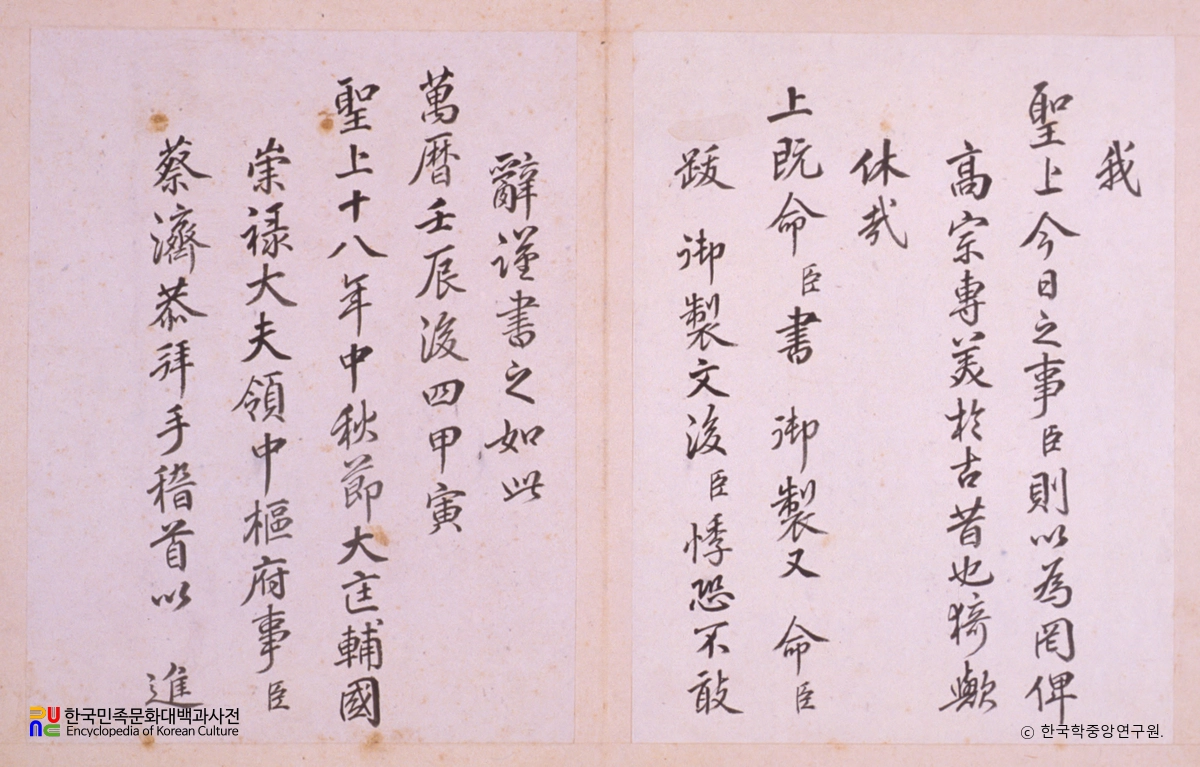 我
聖上今日之事臣則以為罔俾
高宗專美於古昔也猗歟
休哉
上既命臣書 御製又 命臣
跋 御製文後臣悸恐不敢
辭謹書之如此
萬曆壬辰後四甲寅
聖上十八年中秋節大匡輔國
崇祿大夫領中樞府事臣
蔡濟恭拜手稽首以 進
한국민족문화대백과사전
Encyclopedia of Korean Culture
ⓒ 한국학중앙연구원.